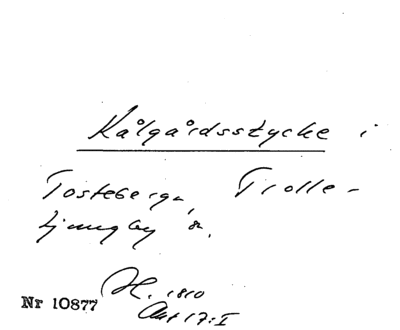 Kålgårdsstycke i
Tosteberga, Trolle-
ljungby s.
H. 1810
Akt 17:I
Nr 10877